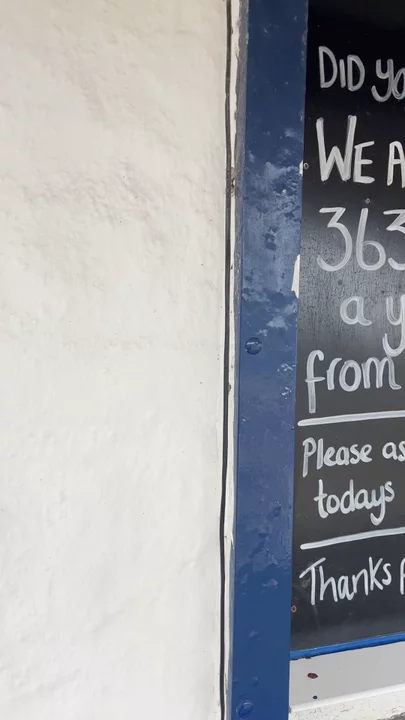 DID yo
WE A
363
a y
from
Please as
todays
Thanks